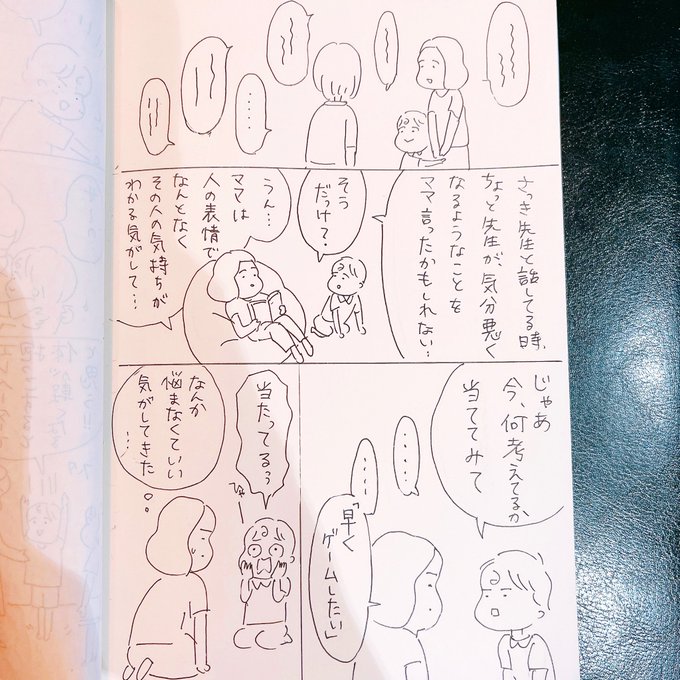 ・・・・
さっき先生と話してる時、
ちょっと先生が、気分悪く
なるようなことを
ママ言ったかもしれない…
そう
だっけ？
うん…
ママは
人の表情で
なんとなく
その人の気持ちが
わかる気がして…
じゃあ
今、何考えてるか
当ててみて
・・・・
・・・・
「早く
ゲームしたい」
当たってるぅ
なんか
悩まなくていい
気がしてきた
…